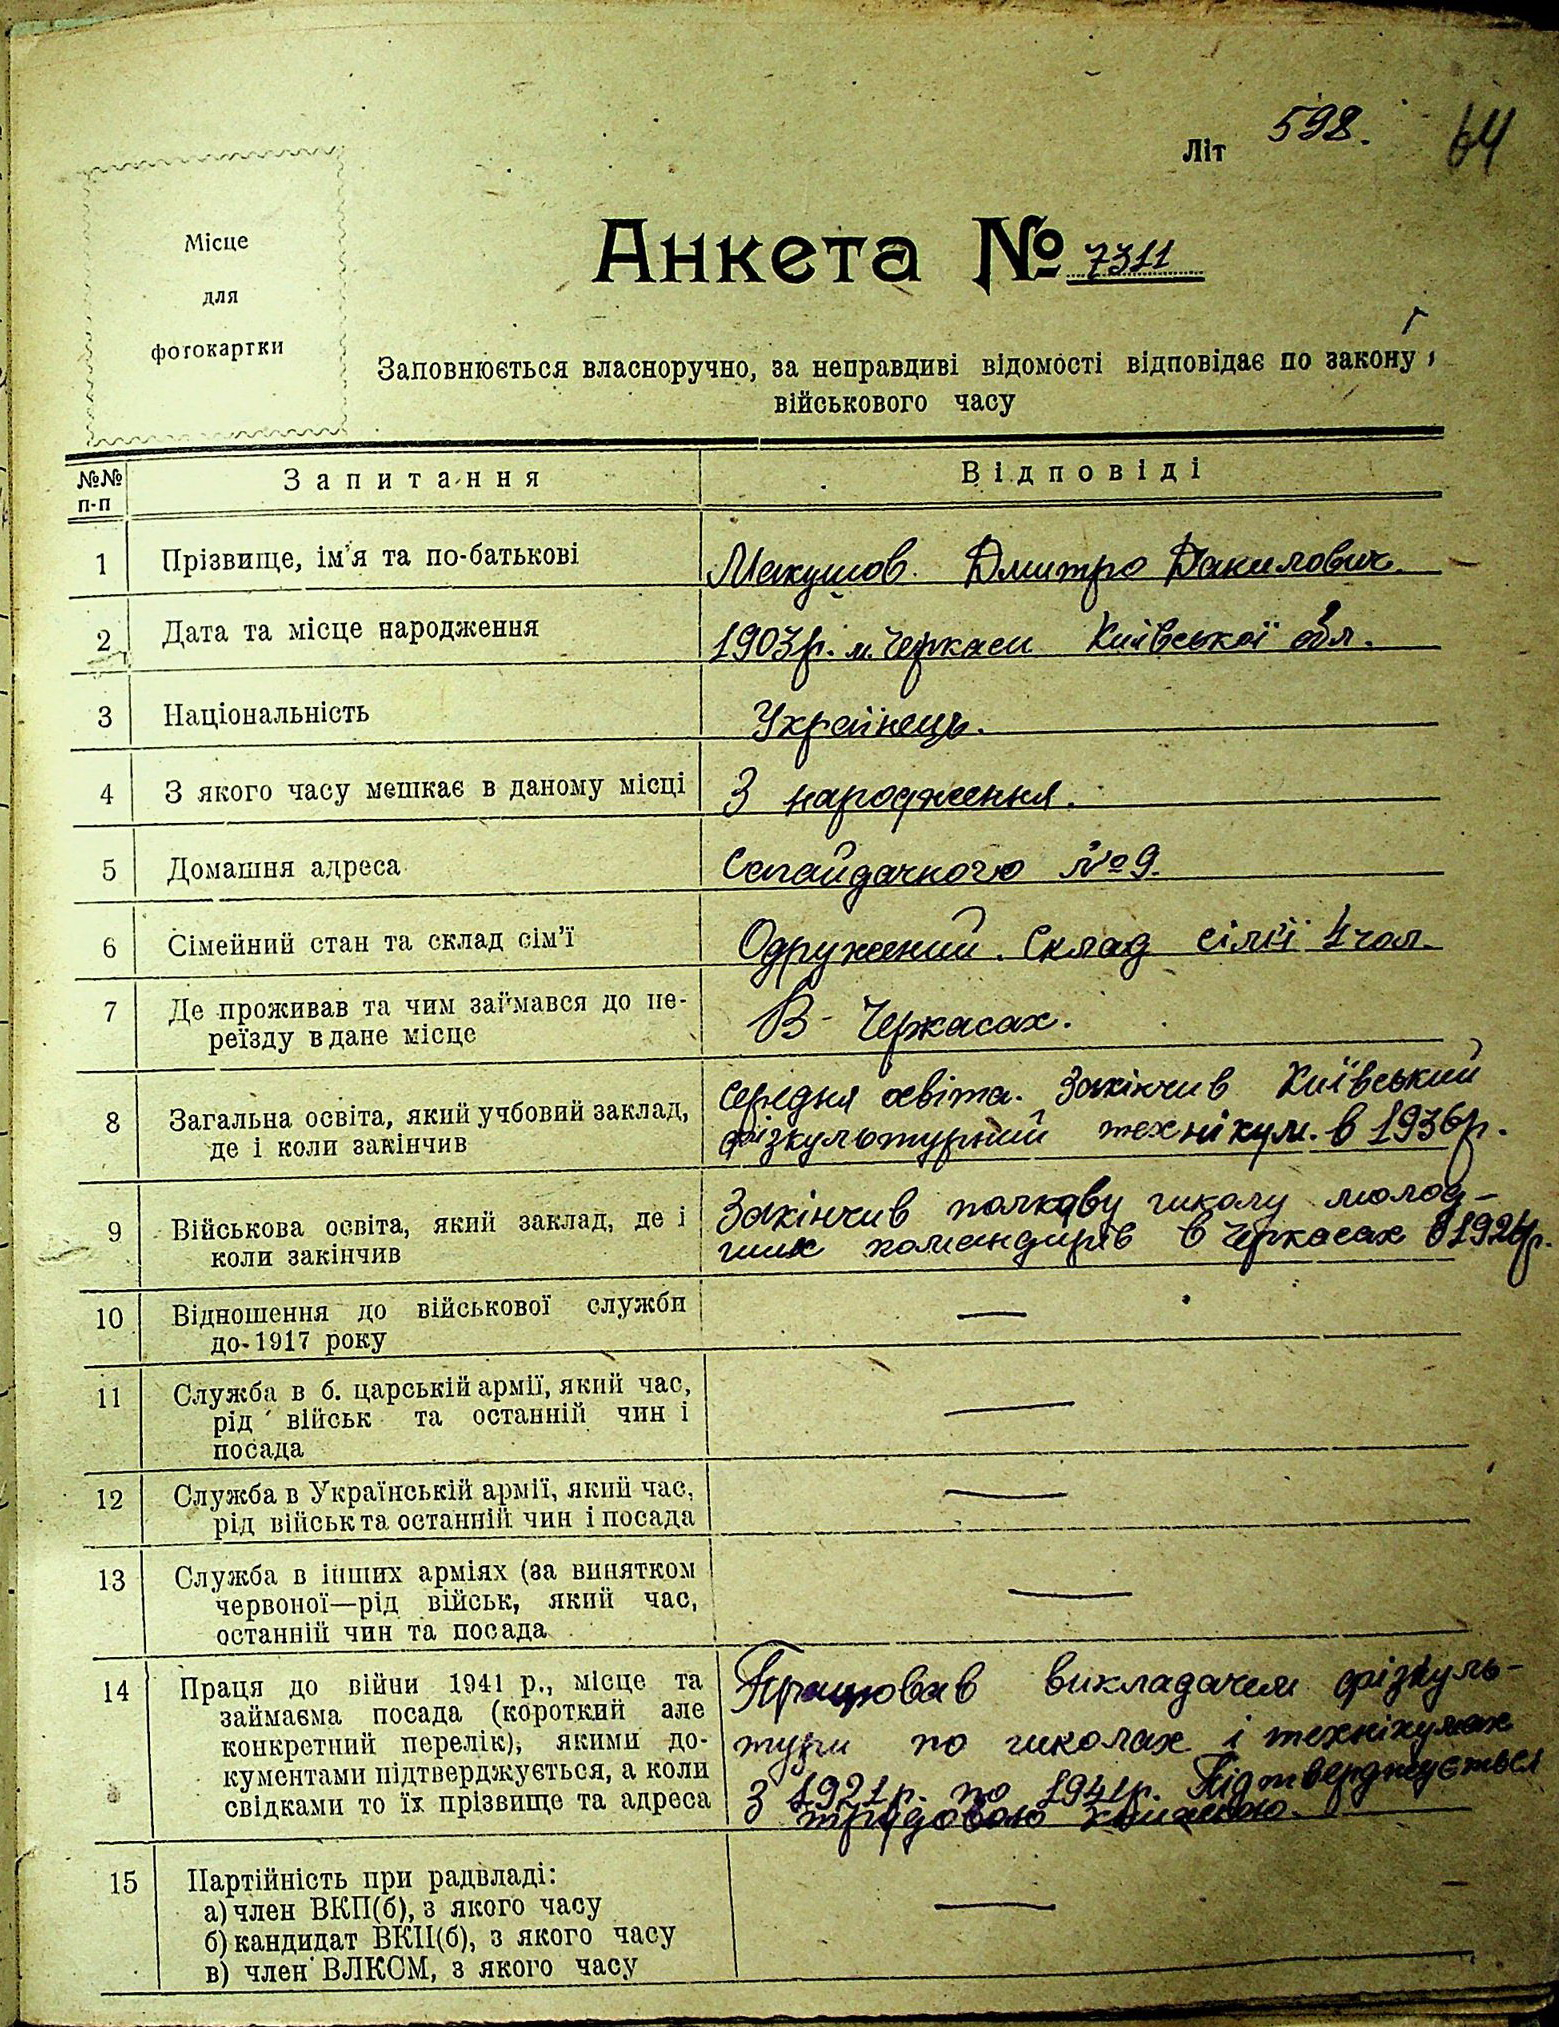 Літ 598. 64
Місце
для
фотокартки
Анкета № 7311
Заповнюється власноручно, за неправдиві відомості відповідає по закону
військового часу
№№ п-п Запитання Відповіді
1 Прізвище, ім'я та по-батькові Макушов Дмитро Данилович.
2 Дата та місце народження 1903р. м. Черкаси Київської обл.
3 Національність Українець.
4 З якого часу мешкає в даному місці З народження.
5 Домашня адреса Сагайдачного №9.
6 Сімейний стан та склад сім'ї Одружений. Склад сімї 4 чол.
7 Де проживав та чим займався до пе-
реїзду в дане місце В Черкасах.
8 Загальна освіта, який учбовий заклад,
де і коли закінчив
середня освіта. Закінчив Київський
фізкультурний технікум. в 1936р.
9 Військова освіта, який заклад, де і
коли закінчив
Закінчив полкову школу молод-
ших командирів в Черкасах в 1924р.
10 Відношення до військової служби
до 1917 року —
11 Служба в б. царській армії, який час,
рід військ та останній чин і
посада —
12 Служба в Українській армії, який час,
рід військ та останній чин і посада —
13 Служба в інших арміях (за винятком
червоної—рід військ, який час,
останній чин та посада —
14 Праця до війни 1941 р., місце та
займаєма посада (короткий але
конкретний перелік), якими до-
кументами підтверджується, а коли
свідками то їх прізвище та адреса
Працював викладачем фізкуль-
тури по школах і технікумах
З 1921р. по 1941р. Підтверджується
трудовою книжкою.
15 Партійність при радвладі:
а) член ВКП(б), з якого часу
б) кандидат ВКП(б), з якого часу
в) член ВЛКСМ, з якого часу —